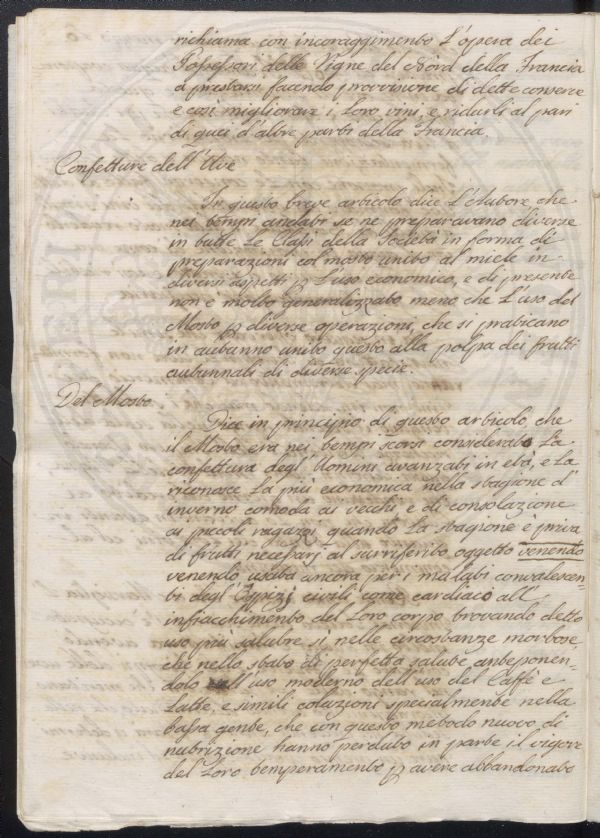 richiama con incoraggimento L'opera dei
Possessori delle Vigne del Nord della Francia
a prestarsi facendo provvisione di dette conserve
e così migliorare i Loro vini, e ridurli al pari
di quei d'altre parti della Francia.
Confetture dell'Uve
In questo breve articolo dice L'Autore che
nei tempi andati se ne preparavano diverse
in tutte Le Classi della Società in forma di
preparazioni col mosto unito al miele in
diversi aspetti p L'uso economico, e di presente
non è molto generalizzato meno che L'uso del
Mosto p diverse operazioni, che si praticano
in autanno unito questo alla polpa dei frutti
autunnali di diverse specie.
Del Mosto
Dice in principio di questo articolo, che
il Mosto era nei tempi scorsi considerato La
confettura degl'Uomini avanzati in età, e La
riconosce La più economica nella stagione d'
inverno comoda ai vecchi, e di consolazione
ai piccoli ragazzi quando La stagione è priva
di frutti necessarj al surriferito oggetto venendo
venendo usata ancora per i malati convalescen-
ti degl'Ospizj civili come cardiaco all'
infiacchimento del Loro corpo trovando detto
uso più salubre sì nelle circostanze morbose,
che nello stato di perfetta salute anteponen-
dolo all'uso moderno dell'uso del Caffè e
Latte, e simili colazioni specialmente nella
bassa gente, che con questo metodo nuovo di
nutrizione hanno perduto in parte il vigore
del Loro temperamento p avere abbandonato